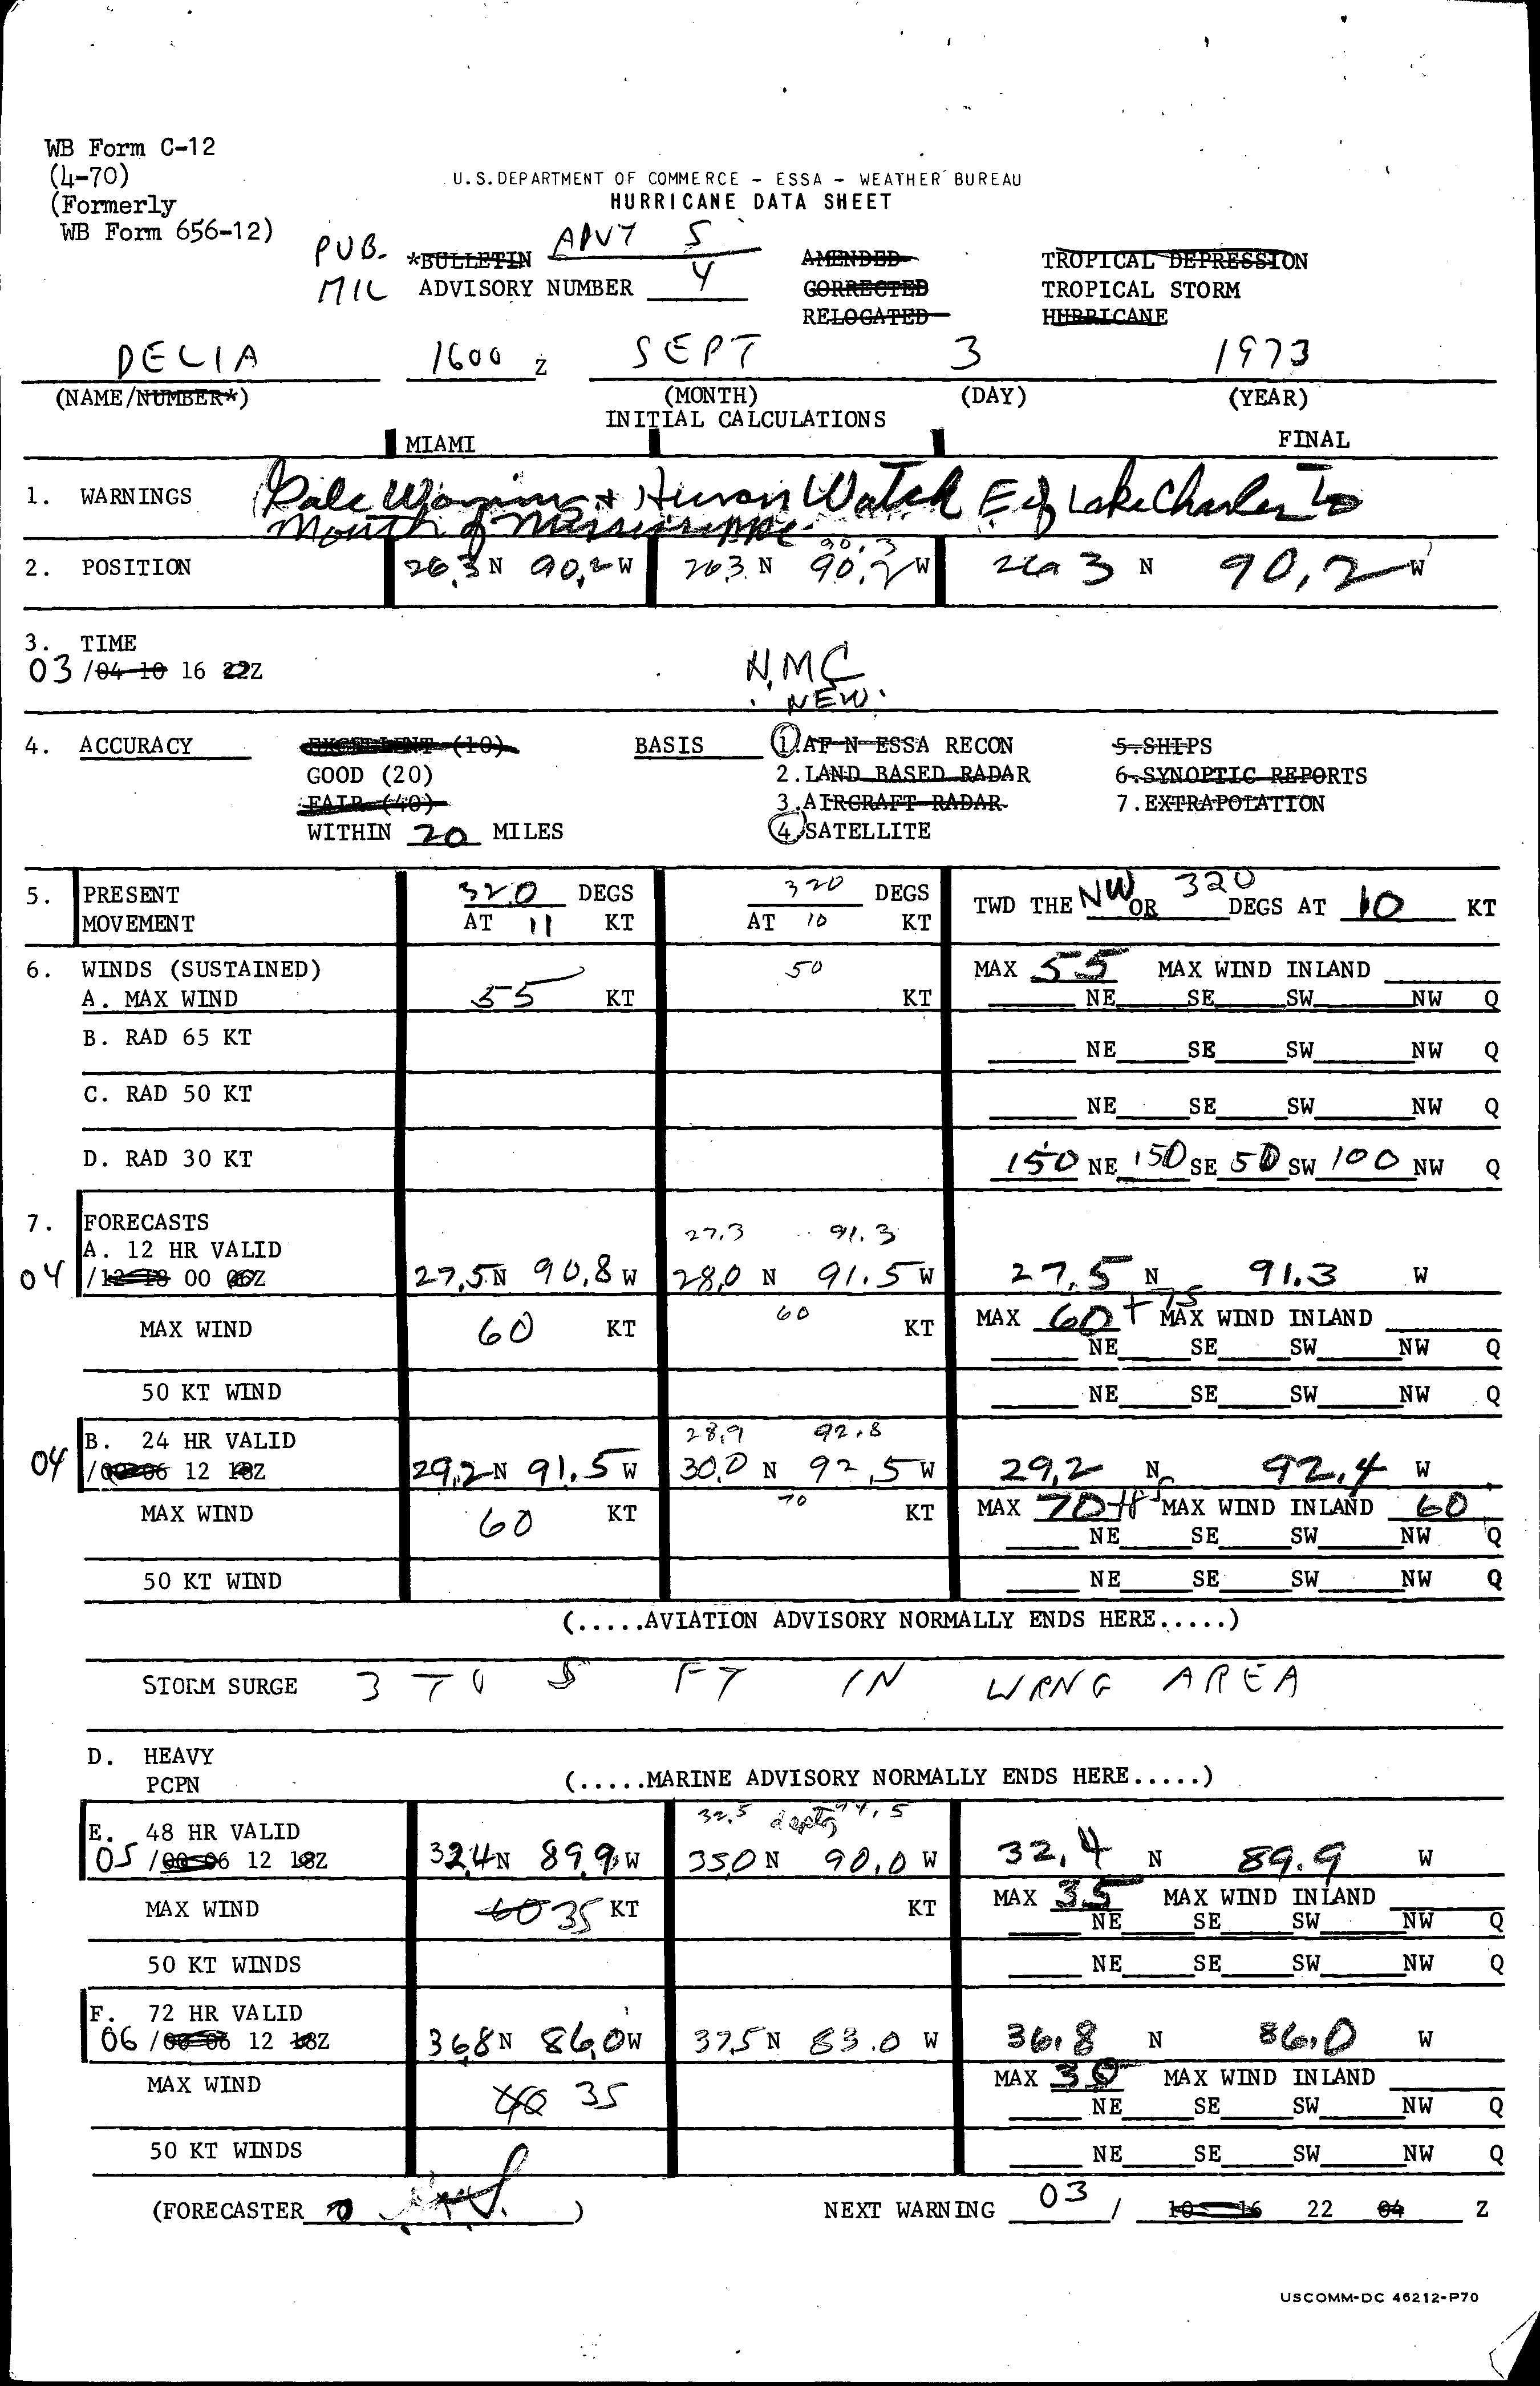 WB Form C-12
(4-70)
(Formerly
WB Form 656-12)
U.S. DEPARTMENT OF COMMERCE - ESSA - WEATHER BUREAU
HURRICANE DATA SHEET
PUB. *BULLETIN ADVY 5 AMENDED TROPICAL DEPRESSION
MIL ADVISORY NUMBER 4 CORRECTED TROPICAL STORM
RELOCATED HURRICANE
DELIA 1600 Z SEPT 3 1973
(NAME/NUMBER*) (MONTH) (DAY) (YEAR)
INITIAL CALCULATIONS
MIAMI FINAL
1. WARNINGS Gale Warnings + Hurrn Watch E of Lake Charles to
Mouth of Mississippi
90.3
2. POSITION 26.3 N 90.2 W 26.3 N 90.2 W 26.3 N 90.2 W
3. TIME
03 /04 10 16 22Z NMC
NEW
4. ACCURACY EXCELLENT (10) BASIS 1. AF N ESSA RECON 5. SHIPS
GOOD (20) 2. LAND BASED RADAR 6. SYNOPTIC REPORTS
FAIR (40) 3. AIRCRAFT RADAR 7. EXTRAPOLATION
WITHIN 20 MILES 4. SATELLITE
5. PRESENT 320 DEGS 320 DEGS TWD THE NW OR 320 DEGS AT 10 KT
MOVEMENT AT 11 KT AT 10 KT
6. WINDS (SUSTAINED) 50 MAX 55 MAX WIND INLAND
A. MAX WIND 55 KT KT NE SE SW NW Q
B. RAD 65 KT NE SE SW NW Q
C. RAD 50 KT NE SE SW NW Q
D. RAD 30 KT 150 NE 150 SE 50 SW 100 NW Q
7. FORECASTS 27.3 91.3
A. 12 HR VALID
04 /12 18 00 06Z 27.5 N 90.8 W 28.0 N 91.5 W 27.5 N 91.3 W
MAX WIND 60 KT 60 KT MAX 60 + 75 MAX WIND INLAND
NE SE SW NW Q
50 KT WIND NE SE SW NW Q
B. 24 HR VALID 28.9 92.8
04 /00 06 12 18Z 29.2 N 91.5 W 30.0 N 92.5 W 29.2 N 92.4 W
MAX WIND 60 KT 70 KT MAX 70 MAX WIND INLAND 60
NE SE SW NW Q
50 KT WIND NE SE SW NW Q
(.....AVIATION ADVISORY NORMALLY ENDS HERE.....)
STORM SURGE 3 TO 5 FT IN WRNG AREA
D. HEAVY
PCPN (.....MARINE ADVISORY NORMALLY ENDS HERE.....)
32.5 94.5
E. 48 HR VALID
05 /00 06 12 18Z 32.4 N 89.9 W 35.0 N 90.0 W 32.4 N 89.9 W
MAX WIND 60 35 KT KT MAX 35 MAX WIND INLAND
NE SE SW NW Q
50 KT WINDS NE SE SW NW Q
F. 72 HR VALID
06 /00 06 12 18Z 36.8 N 86.0 W 37.5 N 83.0 W 36.8 N 86.0 W
MAX WIND 40 35 MAX 30 MAX WIND INLAND
NE SE SW NW Q
50 KT WINDS NE SE SW NW Q
(FORECASTER ) NEXT WARNING 03 / 10 16 22 04 Z
USCOMM-DC 46212-P70